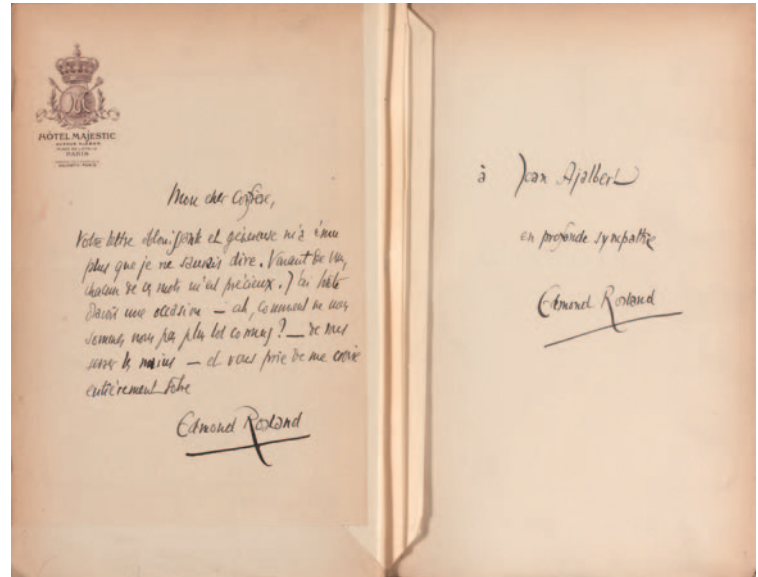 HÔTEL MAJESTIC
AVENUE KLÉBER
PARIS
Mon cher Confrère,
Votre lettre éblouissante et généreuse m'a ému
plus que je ne saurais dire. Venant de vous,
chacun de ces mots m'est précieux. J'ai hâte
d'avoir une occasion — ah, comment ne nous
sommes nous pas plus tôt connus ? — de vous
serrer les mains — et vous prie de me croire
entièrement vôtre
Edmond Rostand
à Jean Ajalbert
en profonde sympathie
Edmond Rostand